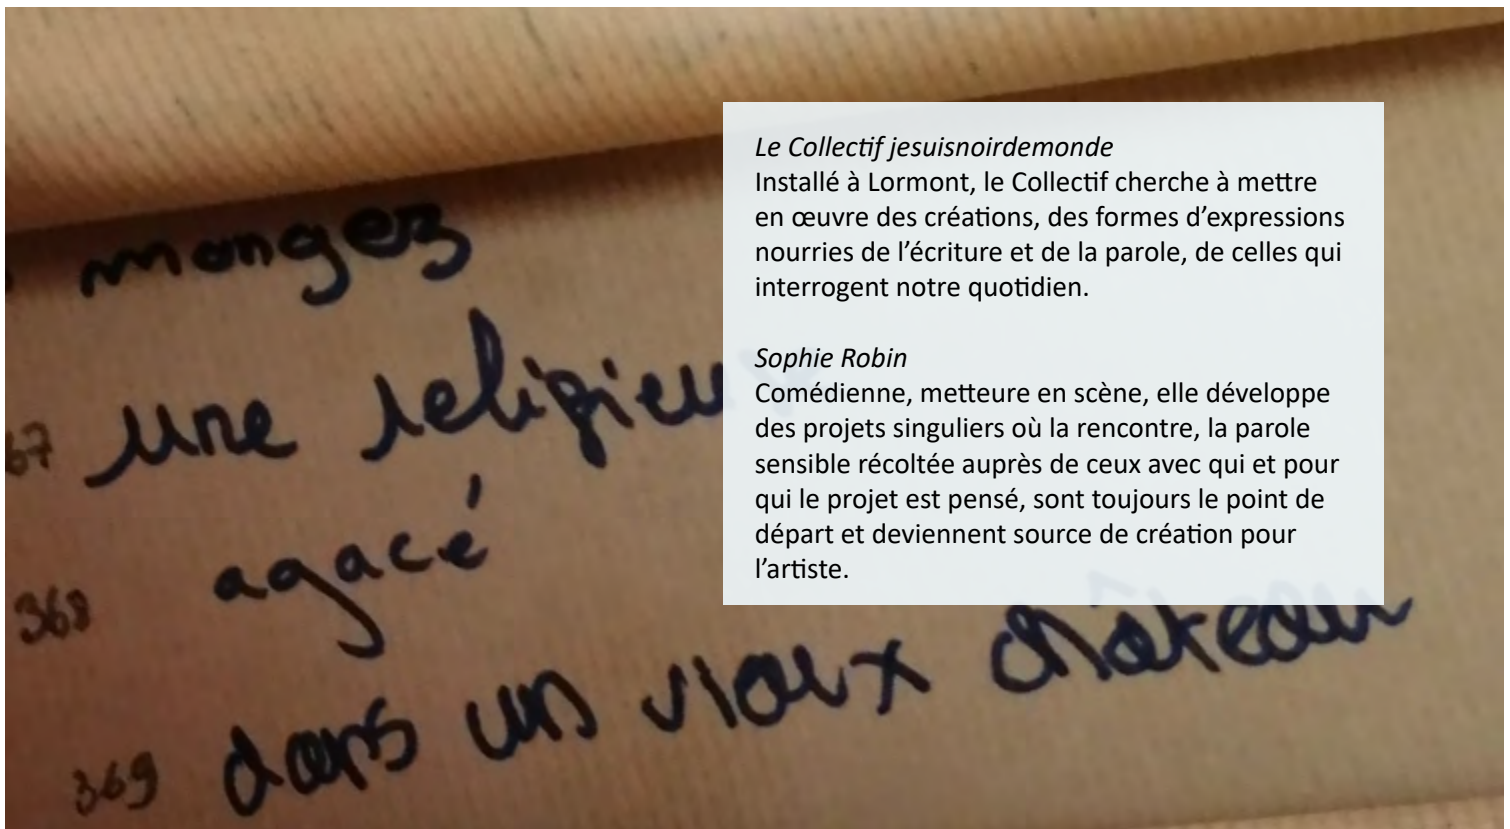 mangez
67 une religieu
368 agacé
369 dans un vieux château
Le Collectif jesuisnoirdemonde
Installé à Lormont, le Collectif cherche à mettre
en œuvre des créations, des formes d’expressions
nourries de l’écriture et de la parole, de celles qui
interrogent notre quotidien.
Sophie Robin
Comédienne, metteure en scène, elle développe
des projets singuliers où la rencontre, la parole
sensible récoltée auprès de ceux avec qui et pour
qui le projet est pensé, sont toujours le point de
départ et deviennent source de création pour
l’artiste.